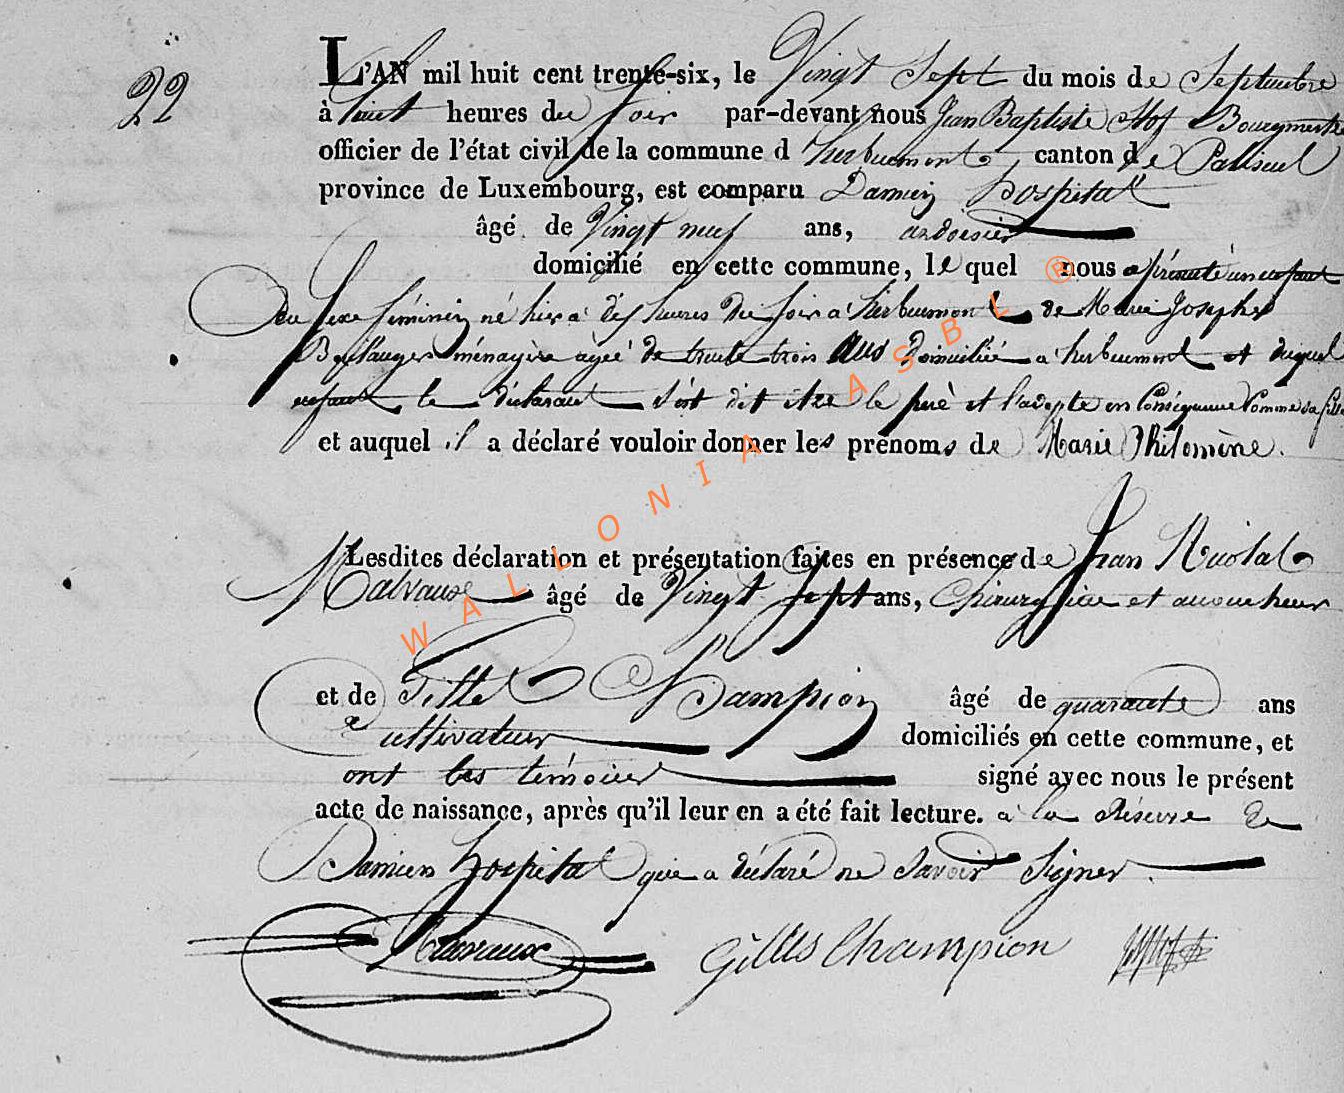 22
L'AN mil huit cent trente-six, le Vingt Sept du mois de Septembre
à huit heures du Soir par-devant nous Jean Baptiste Hof Bourgmestre
officier de l'état civil de la commune d'herbeumont, canton de Paliseul
province de Luxembourg, est comparu Damien hospital
âgé de Vingt neuf ans, ardoisier
domicilié en cette commune, lequel nous a présenté un enfant
du Sexe féminin né hier à dix heures du Soir à herbeumont de Marie Josephe
Boulanger ménagère agée de trente trois Ans Domiciliée à herbeumont et duquel
enfant le déclarant s'est dit être le père et l'adopte en Conséquence Comme sa fille
et auquel il a déclaré vouloir donner les prénoms de Marie Philomène.
Lesdites déclaration et présentation faites en présence de Jean Nicolas
Malvaux âgé de Vingt Sept ans, Chirurgien et accoucheur
et de Gilles Champion âgé de quarante ans
Cultivateur domiciliés en cette commune, et
ont les témoins signé avec nous le présent
acte de naissance, après qu'il leur en a été fait lecture. à la Réserve de
Damien hospital qui a déclaré ne Savoir Signer.
Malvaux Gilles Champion
WALLONIA ASBL ®